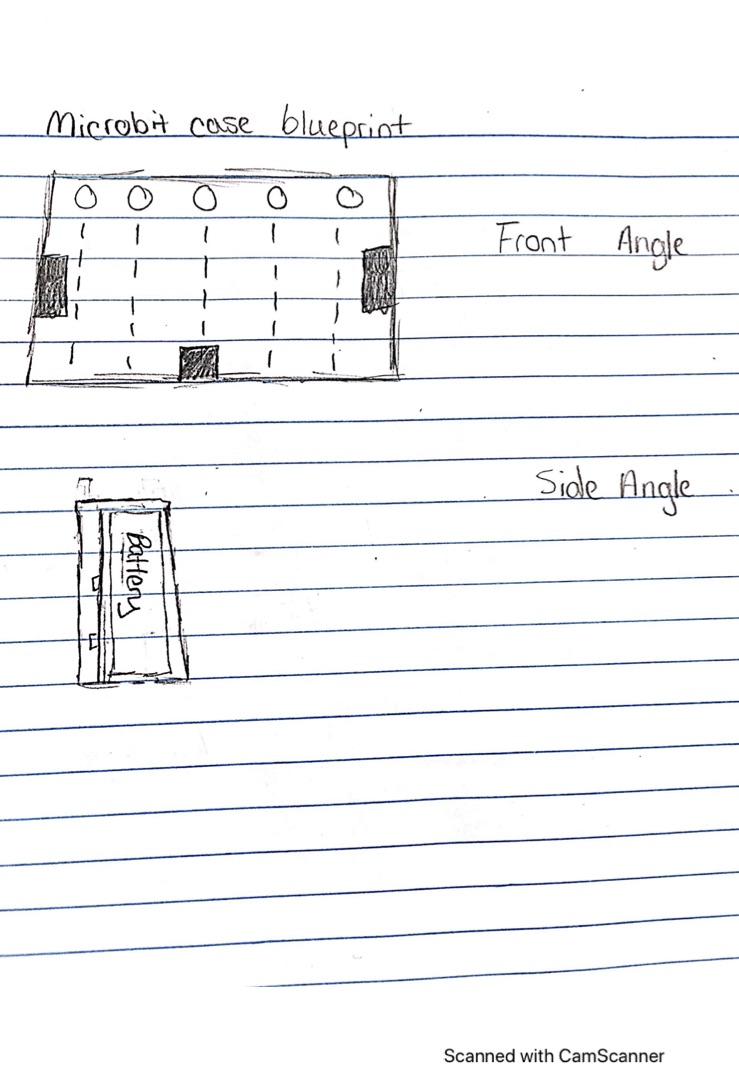 Microbit case blueprint
Front Angle
Side Angle
Battery
Scanned with CamScanner